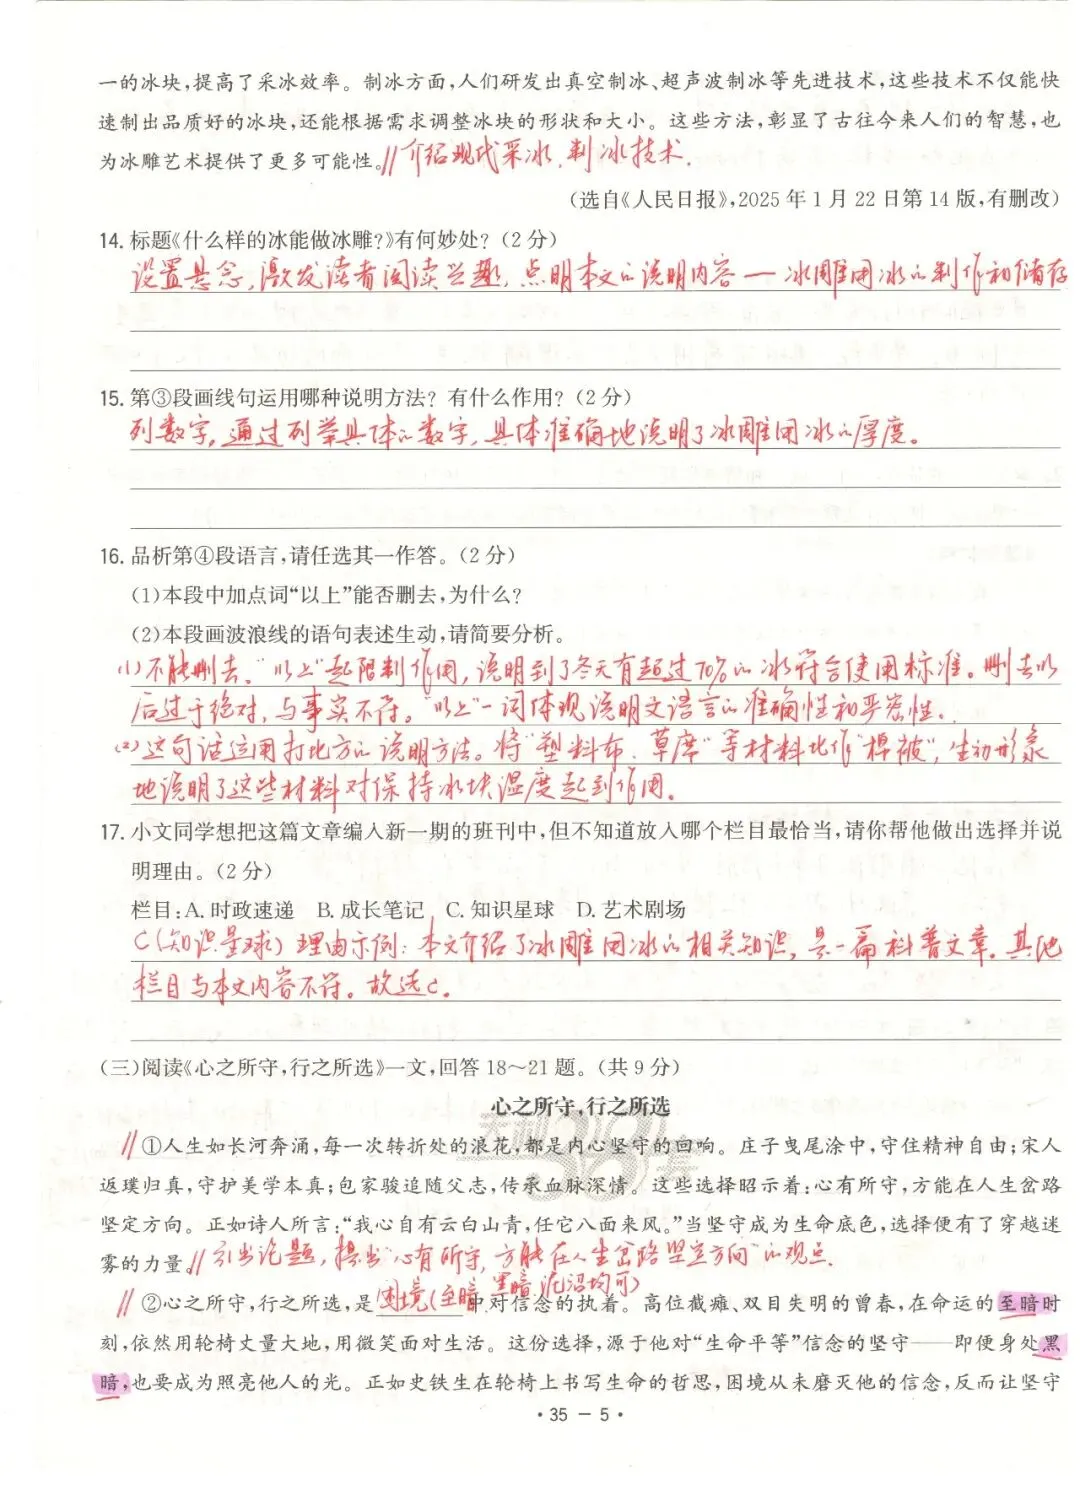 一的冰块,提高了采冰效率。制冰方面,人们研发出真空制冰、超声波制冰等先进技术,这些技术不仅能快
速制出品质好的冰块,还能根据需求调整冰块的形状和大小。这些方法,彰显了古往今来人们的智慧,也
为冰雕艺术提供了更多可能性。// 介绍现代采冰、制冰技术.
(选自《人民日报》,2025年1月22日第14版,有删改)
14. 标题《什么样的冰能做冰雕?》有何妙处?(2分)
设置悬念,激发读者阅读兴趣,点明本文的说明内容—冰雕用冰的制作和储存
15. 第③段画线句运用哪种说明方法?有什么作用?(2分)
列数字,通过列举具体的数字,具体准确地说明了冰雕用冰的厚度。
16. 品析第④段语言,请任选其一作答。(2分)
(1)本段中加点词“以上”能否删去,为什么?
(2)本段画波浪线的语句表述生动,请简要分析。
(1)不能删去。“以上”起限制作用,说明到了冬天有超过70%的冰符合使用标准。删去以
后过于绝对,与事实不符。“以上”一词体现说明文语言的准确性和严密性。
(2)这句话运用打比方的说明方法。将“塑料布、草席”等材料比作“棉被”,生动形象
地说明了这些材料对保持冰块温度起到作用。
17. 小文同学想把这篇文章编入新一期的班刊中,但不知道放入哪个栏目最恰当,请你帮他做出选择并说
明理由。(2分)
栏目:A. 时政速递 B. 成长笔记 C. 知识星球 D. 艺术剧场
C(知识星球) 理由示例:本文介绍了冰雕用冰的相关知识,是一篇科普文章。其他
栏目与本文内容不符。故选C.
(三)阅读《心之所守,行之所选》一文,回答18~21题。(共9分)
心之所守,行之所选
// ①人生如长河奔涌,每一次转折处的浪花,都是内心坚守的回响。庄子曳尾涂中,守住精神自由;宋人
返璞归真,守护美学本真;包家骏追随父志,传承血脉深情。这些选择昭示着:心有所守,方能在人生岔路
坚定方向。正如诗人所言:“我心自有云白山青,任它八面来风。”当坚守成为生命底色,选择便有了穿越迷
雾的力量。// 引出论题,提出“心有所守,方能在人生岔路坚定方向”的观点.
// ②心之所守,行之所选,是困境(至暗、黑暗、泥沼均可)中对信念的执着。高位截瘫、双目失明的曾春,在命运的至暗时
刻,依然用轮椅丈量大地,用微笑面对生活。这份选择,源于他对“生命平等”信念的坚守——即便身处黑
暗,也要成为照亮他人的光。正如史铁生在轮椅上书写生命的哲思,困境从未磨灭他的信念,反而让坚守
·35－5·